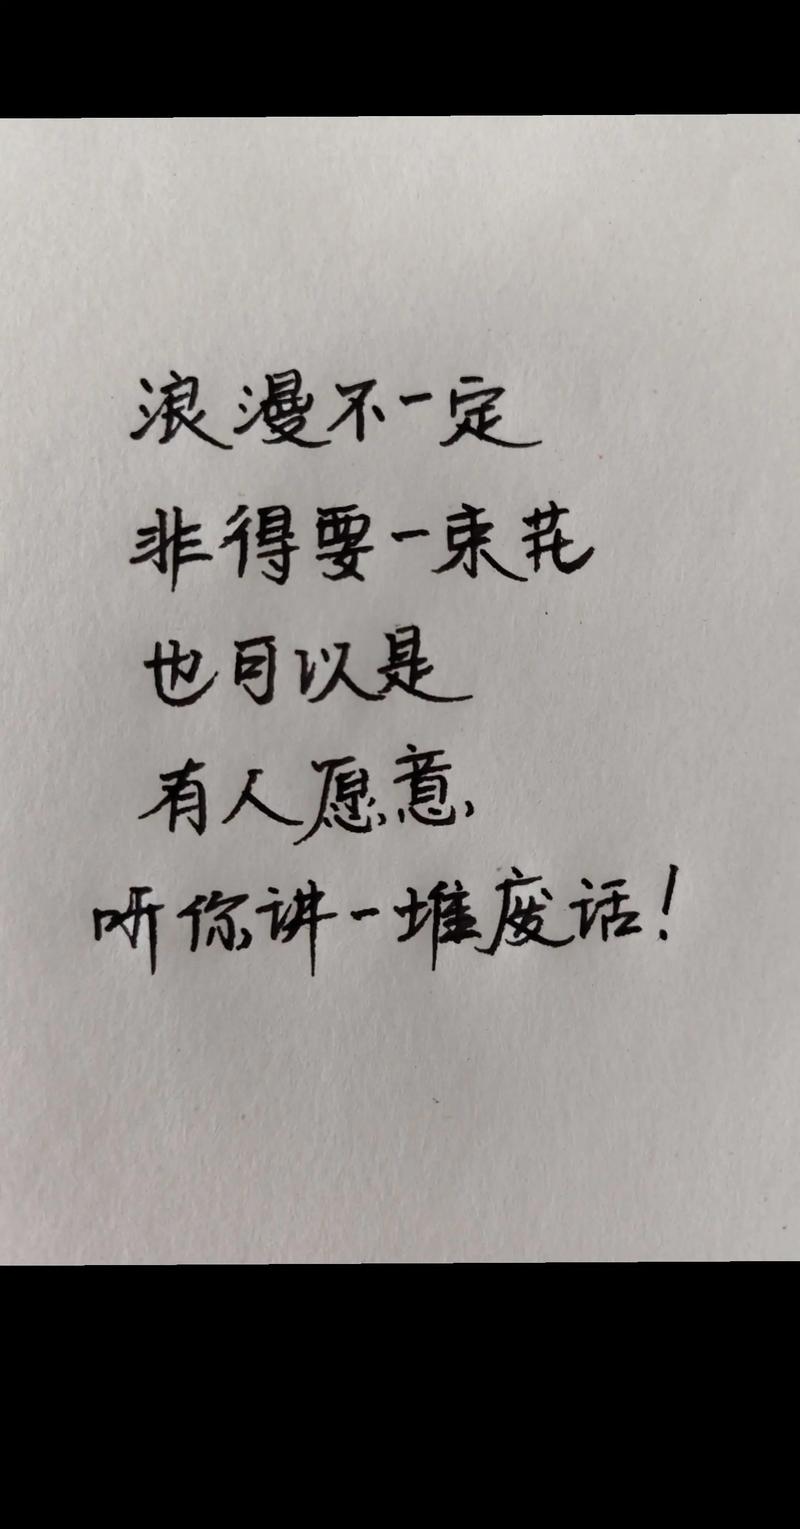 浪漫不一定
非得要一束花
也可以是
有人愿意
听你讲一堆废话！